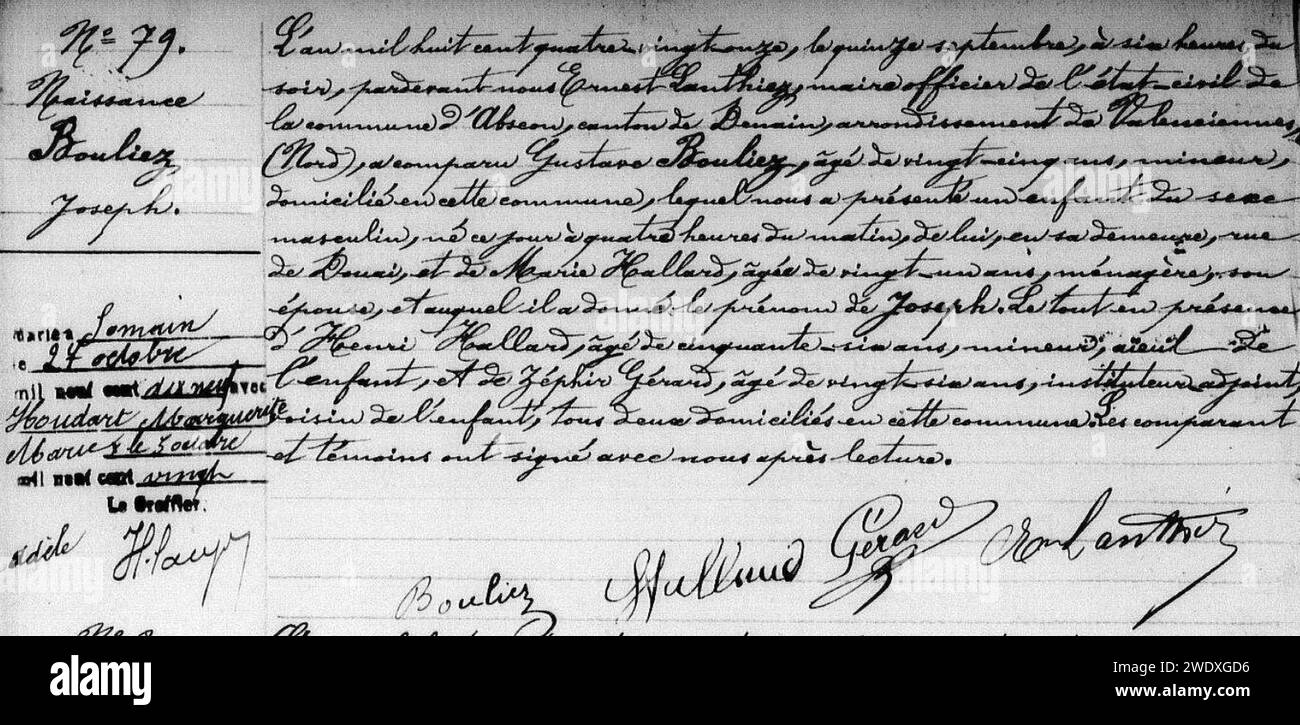 N° 79.
Naissance
Bouliez
Joseph.
L'an mil huit cent quatre-vingt-onze, le quinze septembre, à six heures du
soir, pardevant nous Ernest Lanthiez, maire officier de l'état-civil de
la commune d'Abscon, canton de Denain, arrondissement de Valenciennes,
(Nord), a comparu Gustave Bouliez, âgé de vingt-cinq ans, mineur,
domicilié en cette commune, lequel nous a présenté un enfant du sexe
masculin, né ce jour à quatre heures du matin, de lui, en sa demeure, rue
de Douai, et de Marie Hallard, âgée de vingt-un ans, ménagère, son
épouse, et auquel il a donné le prénom de Joseph. Le tout en présence
d'Henri Hallard, âgé de cinquante-six ans, mineur, aïeul de
l'enfant, et de Zéphir Gérard, âgé de vingt-six ans, instituteur adjoint,
voisin de l'enfant, tous deux domiciliés en cette commune. Les comparant
et témoins ont signé avec nous après lecture.
Marié à Somain
le 27 octobre
mil neuf cent dix neuf avec
Houdart Marguerite
Marie
mil neuf cent vingt
Le Greffier.
adèle
Bouliez
Hallard
Gérard
Lanthiez
alamy
Image ID: 2WDXGD6
www.alamy.com